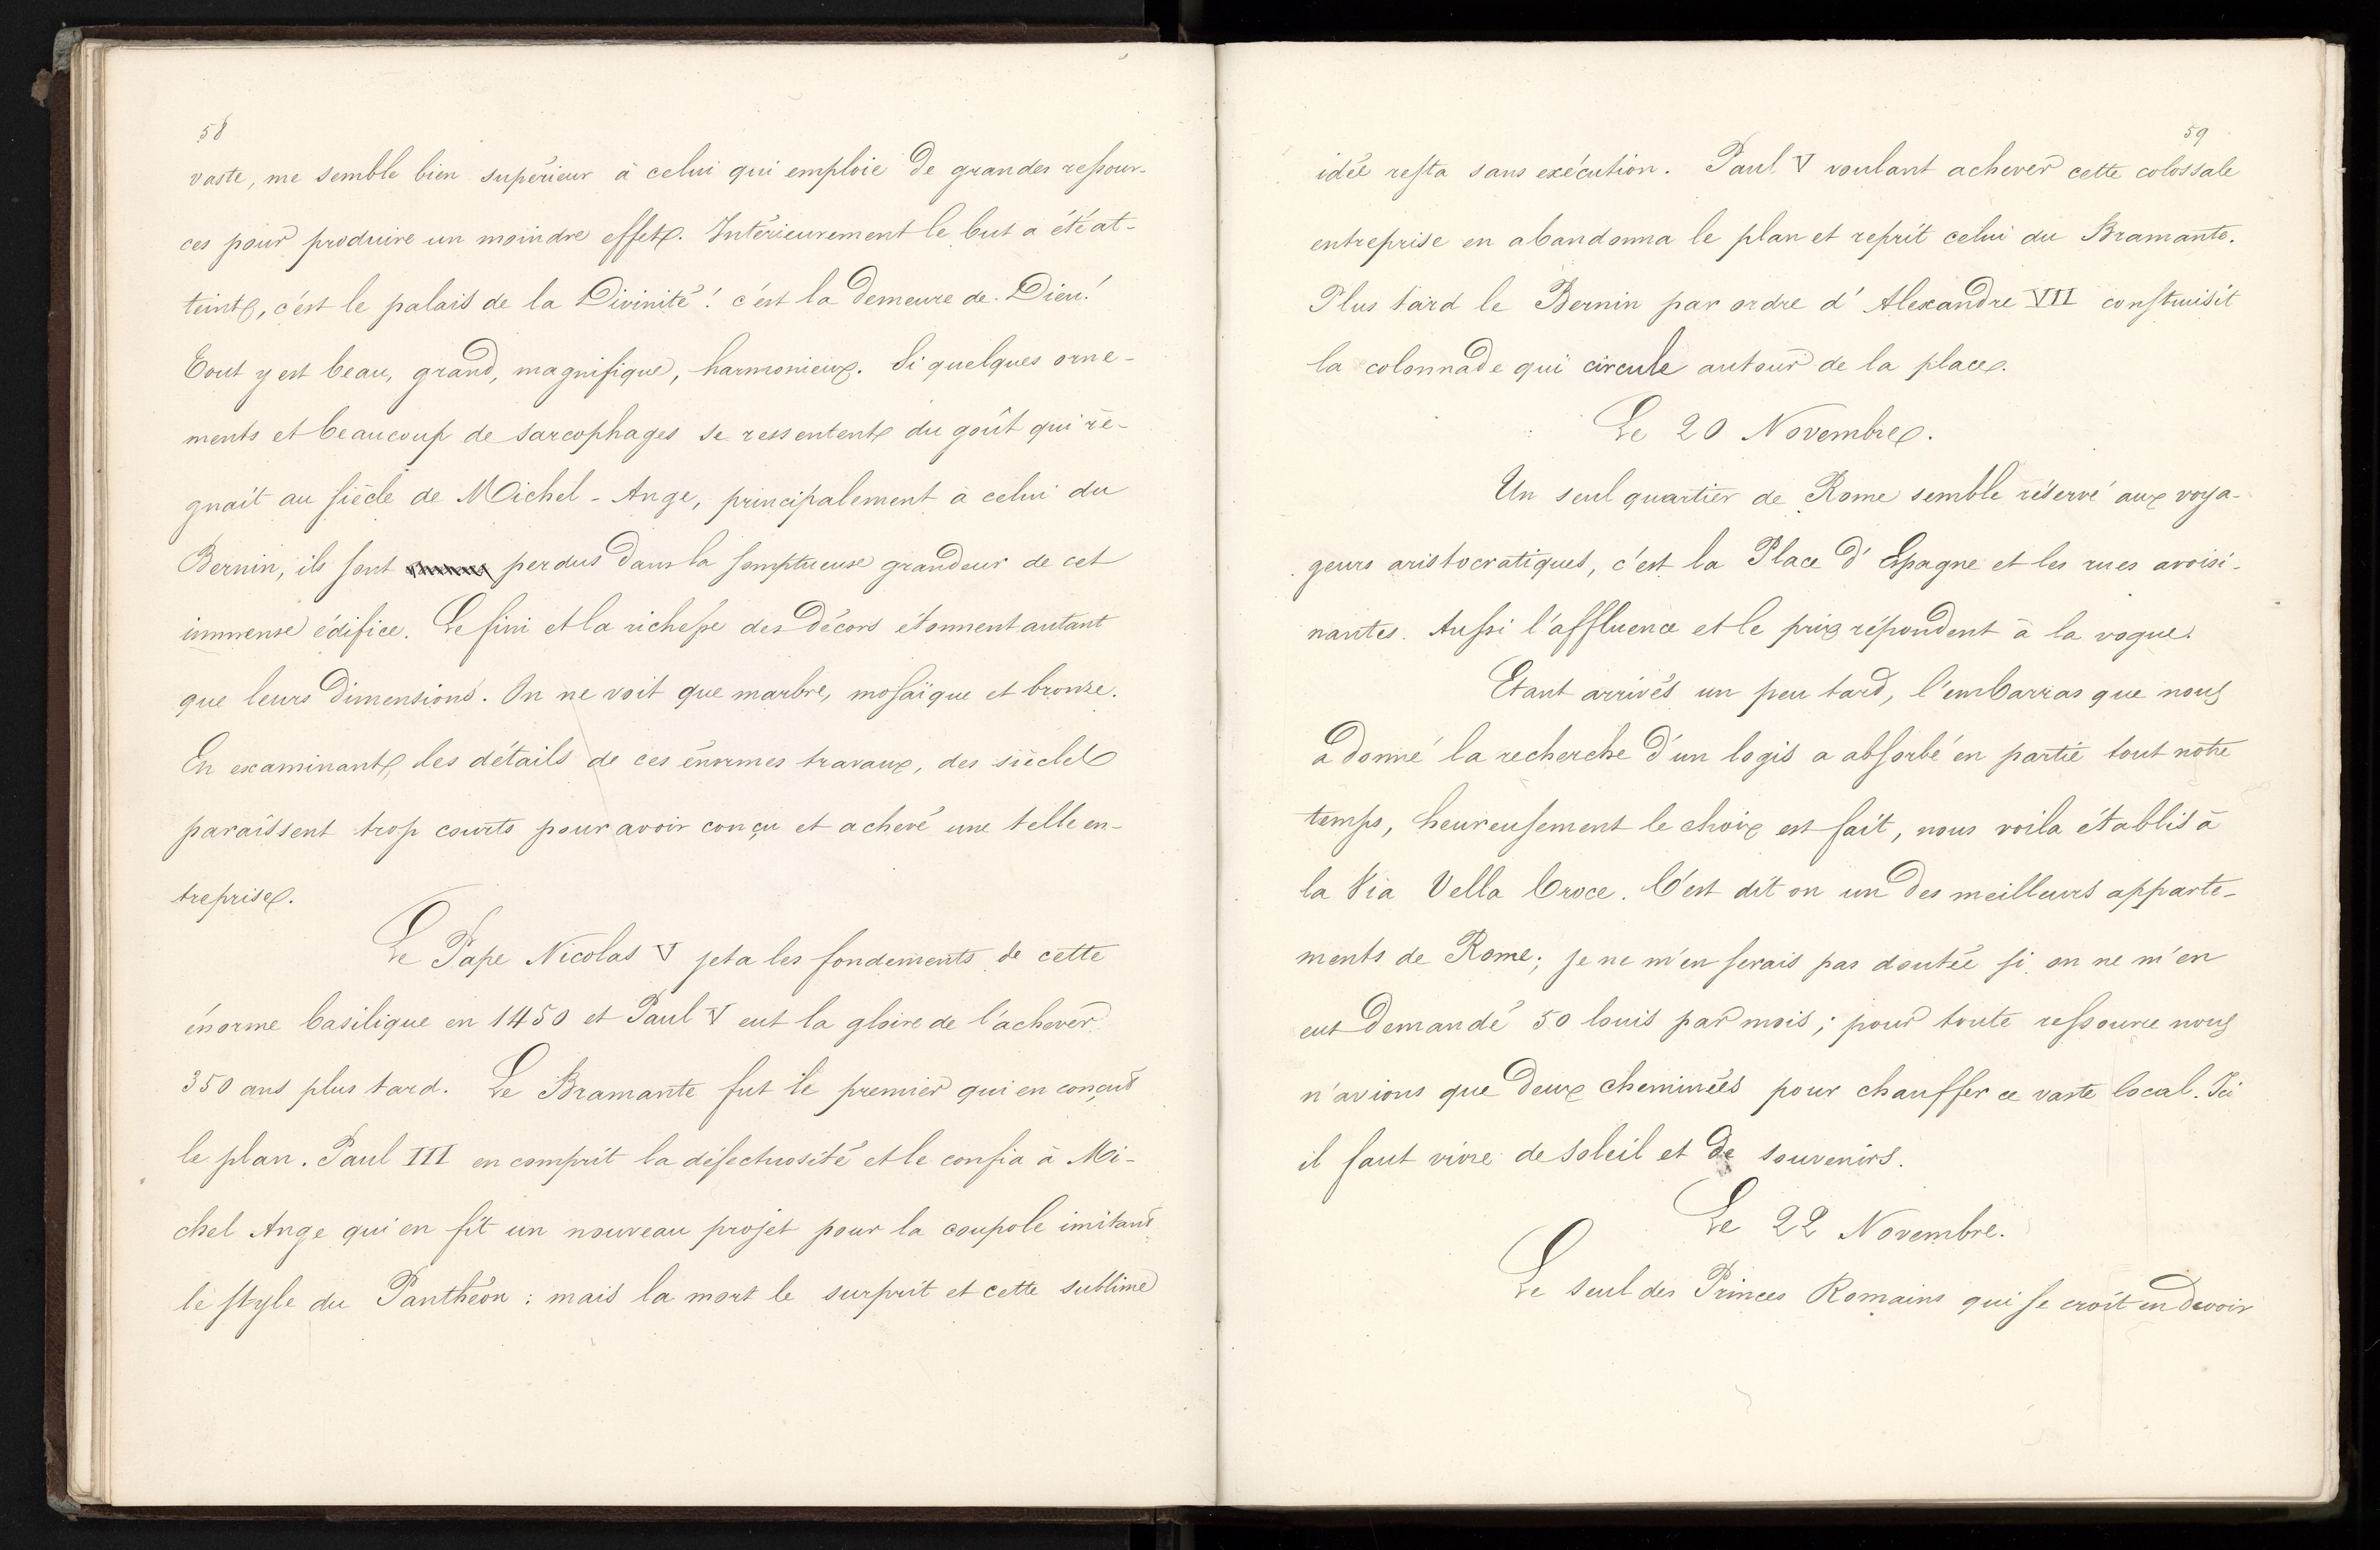 58
vaste, me semble bien supérieur à celui qui emploie de grandes ressour-
ces pour produire un moindre effet. Intérieurement le but a été at-
teint, c'est le palais de la Divinité! c'est la demeure de Dieu!
Tout y est beau, grand, magnifique, harmonieux. Si quelques orne-
ments et beaucoup de sarcophages se ressentent du goût qui ré-
gnait au siècle de Michel-Ange, principalement à celui du
Bernin, ils sont perdus dans la somptueuse grandeur de cet
immense édifice. Le fini et la richesse des décors étonnent autant
que leurs dimensions. On ne voit que marbre, mosaïque et bronze.
En examinant les détails de ces énormes travaux, des siècles
paraissent trop courts pour avoir conçu et achevé une telle en-
treprise.
Le Pape Nicolas V jeta les fondements de cette
énorme basilique en 1450 et Paul V eut la gloire de l'achever
350 ans plus tard. Le Bramante fut le premier qui en conçut
le plan. Paul III en comprit la défectuosité et le confia à Mi-
chel Ange qui en fit un nouveau projet pour la coupole imitant
le style du Panthéon : mais la mort le surprit et cette sublime
59
idée resta sans exécution. Paul V voulant achever cette colossale
entreprise en abandonna le plan et reprit celui du Bramante.
Plus tard le Bernin par ordre d'Alexandre VII constuisit
la colonnade qui circule autour de la place.
Le 20 Novembre.
Un seul quartier de Rome semble réservé aux voya-
geurs aristocratiques, c'est la Place d'Espagne et les rues avoisi-
nantes. Aussi l'affluence et le prix répondent à la vogue.
Etant arrivés un peu tard, l'embarras que nous
a donné la recherche d'un logis a absorbé en partie tout notre
temps, heureusement le choix est fait, nous voila établis à
la Via Vella Croce. C'est dit on un des meilleurs apparte-
ments de Rome; je ne m'en serais pas doutée si on ne m'en
eut demandé 50 louis par mois; pour toute ressource nous
n'avions que deux cheminées pour chauffer ce vaste local. Ici
il faut vivre de soleil et de souvenirs.
Le 22 Novembre.
Le seul des Princes Romains qui se croit en devoir